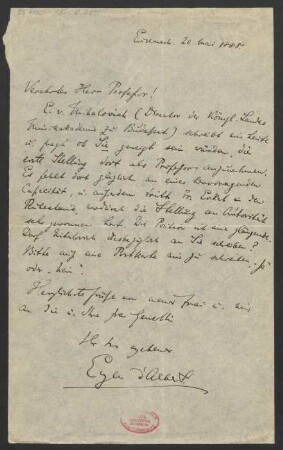 Eisenach. 20 Mai 1888
Verehrter Herr Professor!
E. v. Mihalovich (Director der Königl. Landes
Musikakademie zu Budapest) schreibt mir heute
u. fragt ob Sie geneigt sein würden, die
erste Stellung dort als Professor anzunehmen.
Es fehlt dort gänzlich an einer hervorragenden
u. außerdem tritt in den
Ruhestand wodurch die Stellung an
gewonnen hat. Die Position ist eine glänzende.
Darf Mihalovich desbezüglich an Sie schreiben?
Bitte auf eine Postkarte mir zu schreiben "Ja"
oder "Nein".
Herzlichste Grüße von meiner Frau u. mir
an Sie u. Ihre Frau Gemahlin
Ihr ergebener
Eugen d'Albert